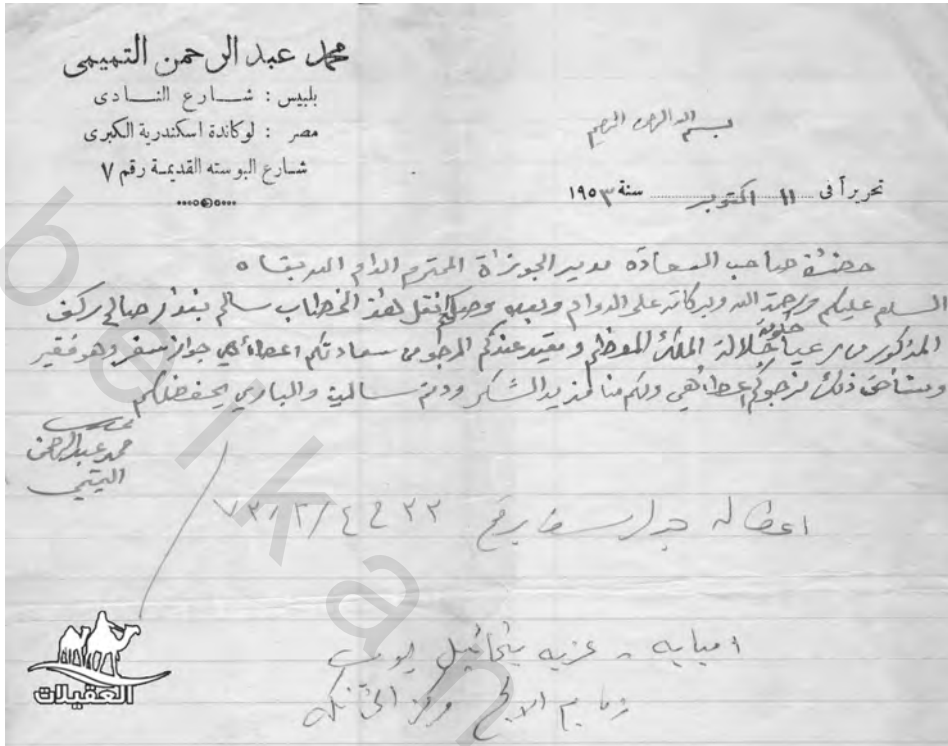 محمد عبد الرحمن التميمى
بلبيس : شارع النادى
مصر : لوكاندة اسكندرية الكبرى
شارع البوسته القديمة رقم ٧
بسم الله الرحمن الرحيم
تحريراً فى ١١ اكتوبر سنة ١٩٥٣
حضرة صاحب السعادة مدير الجوزاة المحترم الدام الله بقاه
السلام عليكم ورحمة الله وبركاته على الدوام وبعد نقل هذا الخطاب سالم بندر صالح
المذكور من رعيا جلالة الملك المعظم ومقيد عندكم المرجو من سعادتكم جواز سفر وهو فقير
ذلك نرجوكم ولكم منا مزيد الشكر ودمتم سالمين والباري يحفضلكم
محمد عبد الرحمن
التميمي
اعطا له جواز سفر
امبابه - عزبه ميخائيل
العقيلات
belkan